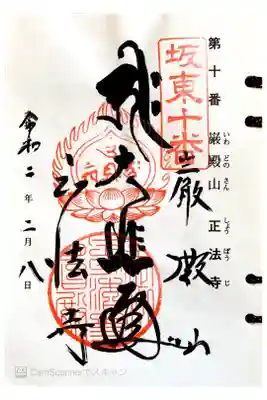 第十番 巌殿山 正法寺
いわ どの さん しょう ぼう じ
坂東十番
巌殿山
大悲閣
正法寺
令和二年二月八日
CamScannerでスキャン